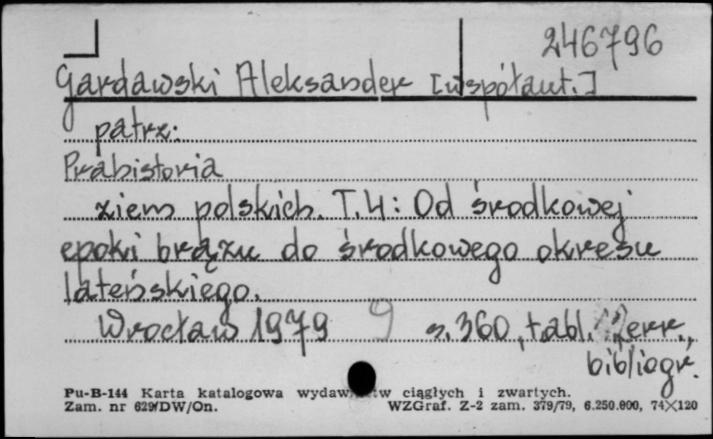 246796
Gardawski Aleksander [współaut.]
patrz:
Prahistoria
ziem polskich. T.4: Od środkowej
epoki brązu do środkowego okresu
lateńskiego.
Wrocław 1979 9 s. 360, tabl. err.,
bibliogr.
Pu-B-144 Karta katalogowa wydaw tw ciągłych i zwartych.
Zam. nr 629/DW/On. WZGraf. Z-2 zam. 379/79, 6.250.000, 74×120